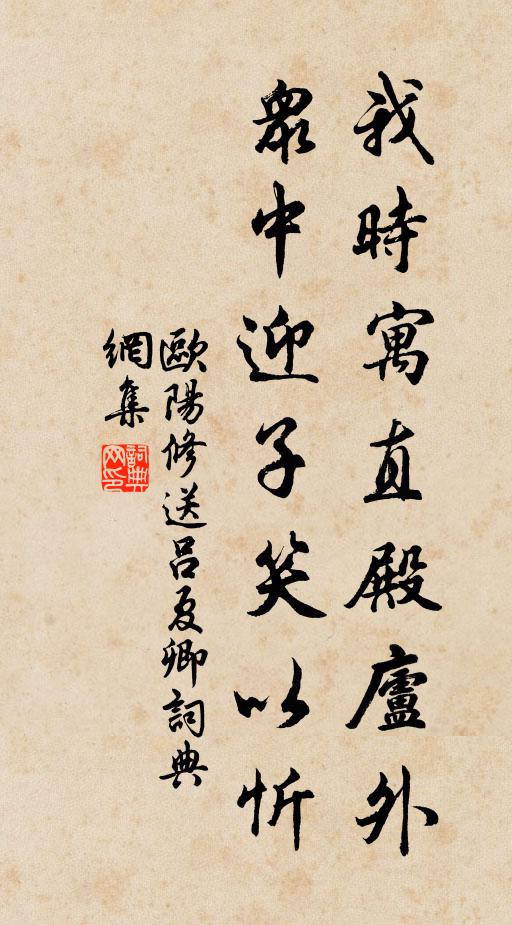 我時寓直殿廬外
眾中迎子笑以忻
歐陽修送呂夏卿詞典
網集
詞典网印